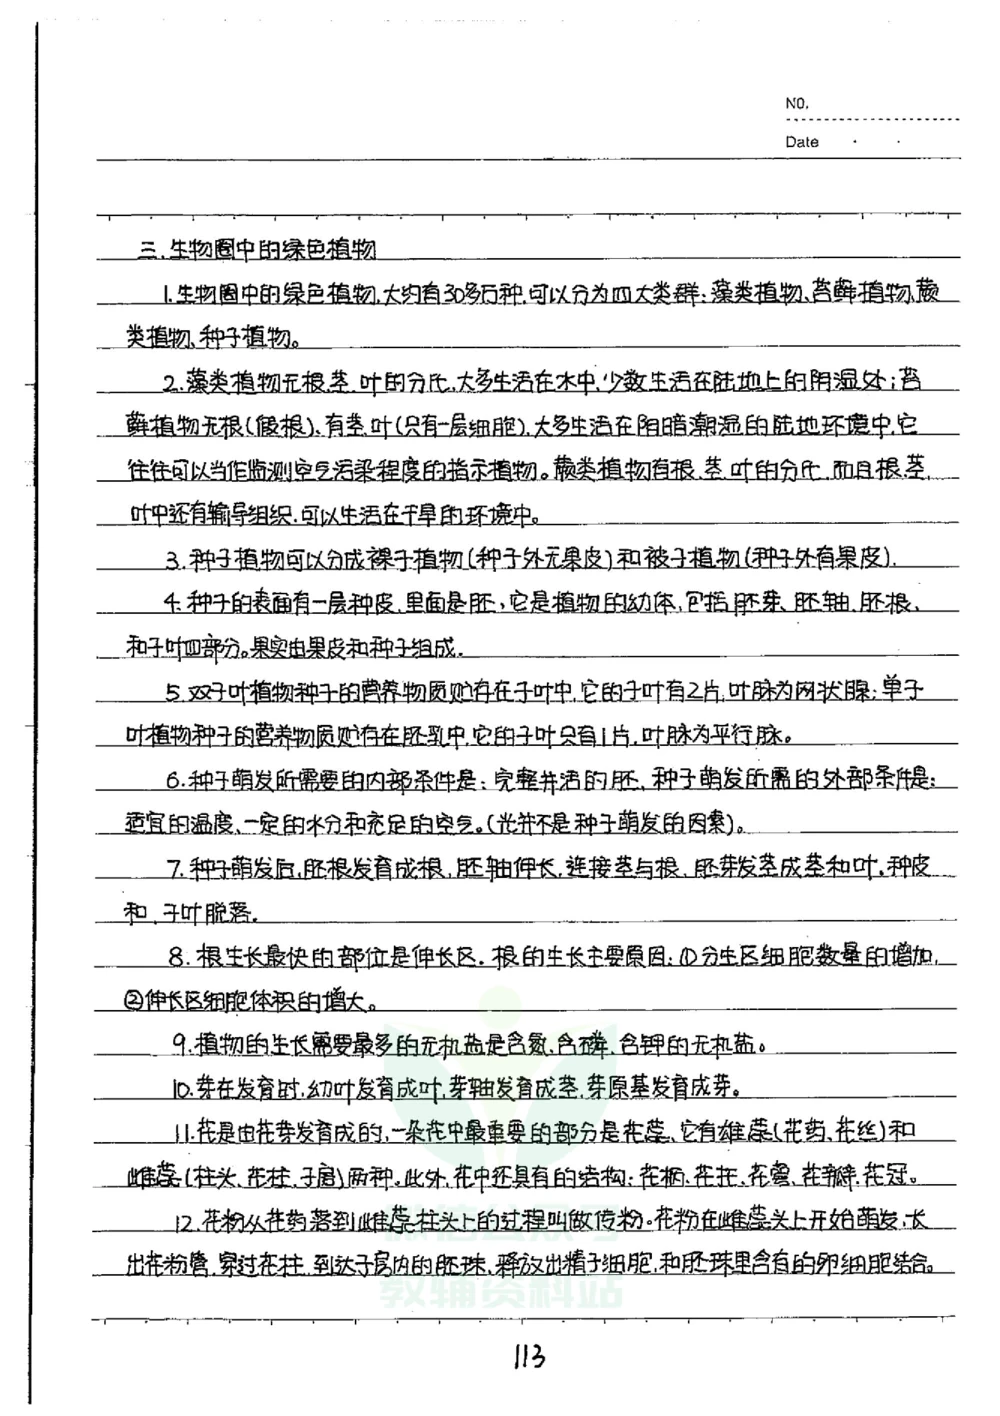 NO.
Date
三.生物圈中的绿色植物
1.生物圈中的绿色植物,大约有30多万种,可以分为四大类群:藻类植物、苔藓植物、蕨
类植物、种子植物。
2.藻类植物无根、茎、叶的分化,大多生活在水中,少数生活在陆地上的阴湿处;苔
藓植物无根(假根)、有茎、叶(只有一层细胞),大多生活在阴暗潮湿的陆地环境中,它
往往可以当作监测空气污染程度的指示植物。蕨类植物有根、茎、叶的分化,而且根、茎、
叶中还有输导组织,可以生活在干旱的环境中。
3.种子植物可以分成裸子植物(种子外无果皮)和被子植物(种子外有果皮).
4.种子的表面有一层种皮,里面是胚,它是植物的幼体,包括胚芽、胚轴、胚根、
和子叶四部分。果实由果皮和种子组成.
5.双子叶植物种子的营养物质贮存在子叶中,它的子叶有2片,叶脉为网状腺;单子
叶植物种子的营养物质贮存在胚乳中,它的子叶只有1片,叶脉为平行脉。
6.种子萌发所需要的内部条件是:完整并活的胚,种子萌发所需的外部条件是:
适宜的温度、一定的水分和充足的空气。(光并不是种子萌发的因素)。
7.种子萌发后,胚根发育成根,胚轴伸长,连接茎与根、胚芽发茎成茎和叶。种皮
和、子叶脱落.
8.根生长最快的部位是伸长区.根的生长主要原因:①分生区细胞数量的增加,
②伸长区细胞体积的增大。
9.植物的生长需要最多的无机盐是含氮、含磷、含钾的无机盐。
10.芽在发育时,幼叶发育成叶,芽轴发育成茎,芽原基发育成芽。
11.花是由花芽发育成的,一朵花中最重要的部分是花蕊、它有雄蕊(花药、花丝)和
雌蕊(柱头、花柱、子房)两种.此外,花中还具有的结构:花柄、花托、花萼、花瓣、花冠。
12.花粉从花药落到雌蕊柱头上的过程叫做传粉。花粉在雌蕊头上开始萌发,长
出花粉管,穿过花柱,到达子房内的胚珠,释放出精子细胞,和胚珠里含有的卵细胞结合。
微信公众号
教辅资料站
113